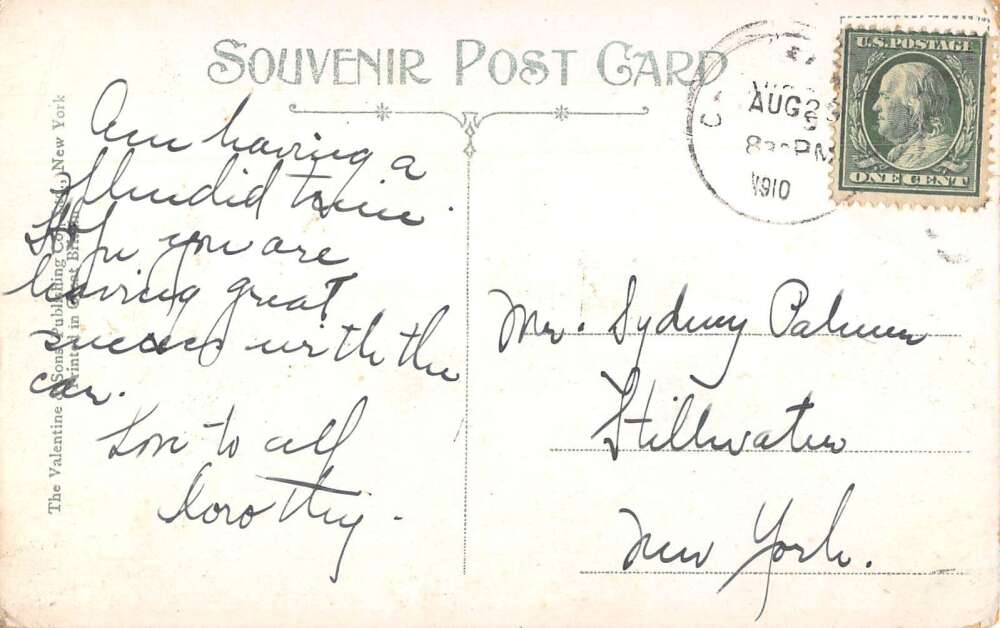 SOUVENIR POST CARD
Am having a
splendid time.
Hope you are
having great
success with the
car.
Love to all
Dorothy.
The Valentine & Sons Publishing Co., New York
Printed in Great Britain
AUG 23
8 30 PM
1910
U.S. POSTAGE
ONE CENT
Mr. Sydney Palmer
Stillwater
New York.